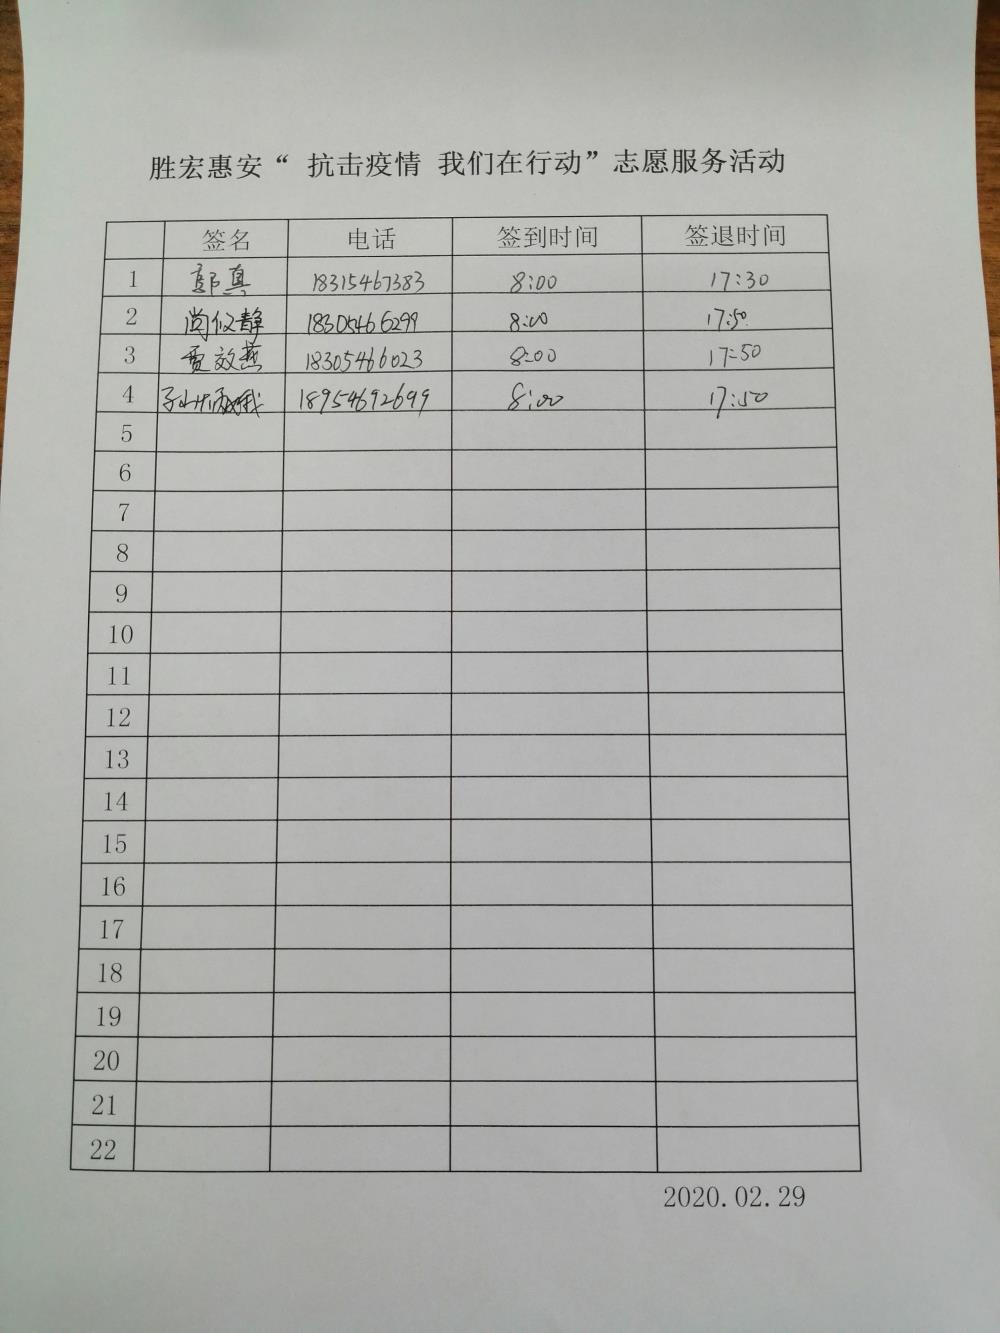 胜宏惠安“ 抗击疫情 我们在行动”志愿服务活动
签名 电话 签到时间 签退时间
1 郭真 18315467383 8:00 17:30
2 尚仪静 18305466299 8:00 17:50
3 贾效燕 18305466023 8:00 17:50
4 18954692699 8:00 17:50
5
6
7
8
9
10
11
12
13
14
15
16
17
18
19
20
21
22
2020.02.29